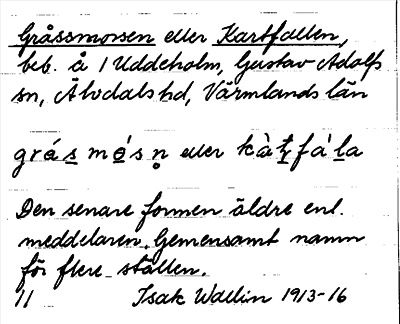 Gråssmorsen eller Kartfallen,
beb. å 1 Uddeholm, Gustav Adolfs
sn, Älvdals hd, Värmlands län
grás mǿ́sn̥ eller kàt̬fàla
Den senare formen äldre enl.
meddelaren. Gemensamt namn
för flere ställen.
11 Isak Wallin 1913-16